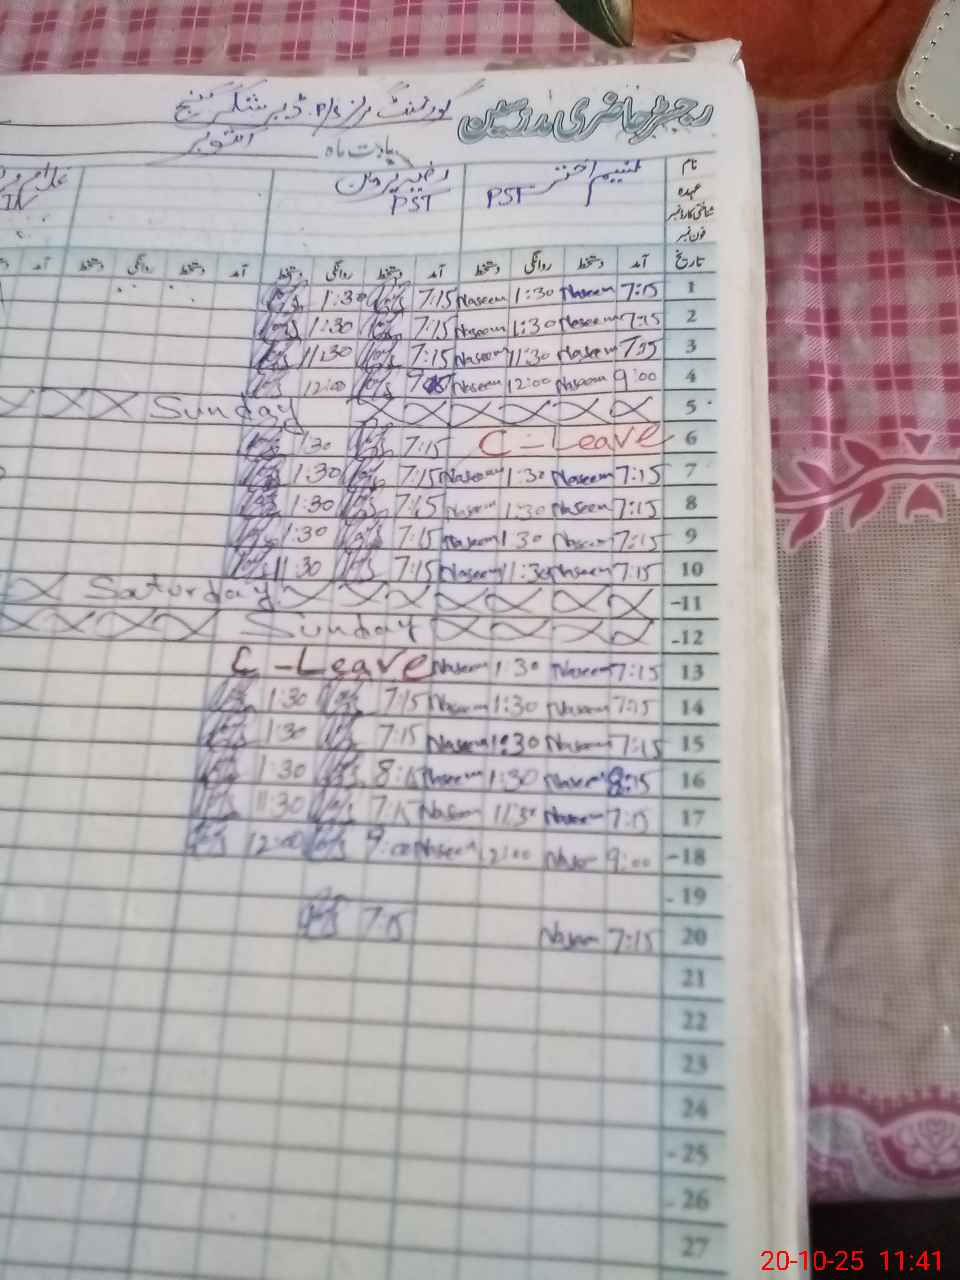 رجسٹر حاضری مدرسین گورنمنٹ گرلز P/S
بابت ماہ اکتوبر
نام
عہدہ
شناختی کارڈ نمبر
فون نمبر
نسیم اختر
PST
PST
تاریخ آمد دستخط روانگی دستخط آمد دستخط روانگی دستخط آمد دستخط روانگی دستخط آمد
1 7:15 Naseem 1:30 Naseem 7:15 1:30
2 7:15 Naseem 1:30 Naseem 7:15 1:30
3 7:15 Naseem 11:30 Naseem 7:15 11:30
4 9:00 Naseem 12:00 Naseem 12:00
5 Sunday
6 C-Leave 7:15 1:30
7 7:15 Naseem 1:30 Naseem 7:15 1:30
8 7:15 Naseem 1:30 Naseem 7:15 1:30
9 7:15 Naseem 1:30 Naseem 7:15 1:30
10 7:15 Naseem 11:30 Naseem 7:15 11:30
11 Saturday
12 Sunday
13 7:15 Naseem 1:30 Naseem C-Leave
14 7:15 Naseem 1:30 Naseem 7:15 1:30
15 7:15 Naseem 1:30 Naseem 7:15 1:30
16 8:15 Naseem 1:30 Naseem 8:15 1:30
17 7:15 Naseem 11:30 Naseem 7:15 11:30
18 9:00 Naseem 12:00 Naseem 9:00 12:00
19
20 7:15 Naseem 7:15
21
22
23
24
25
26
27
20-10-25 11:41